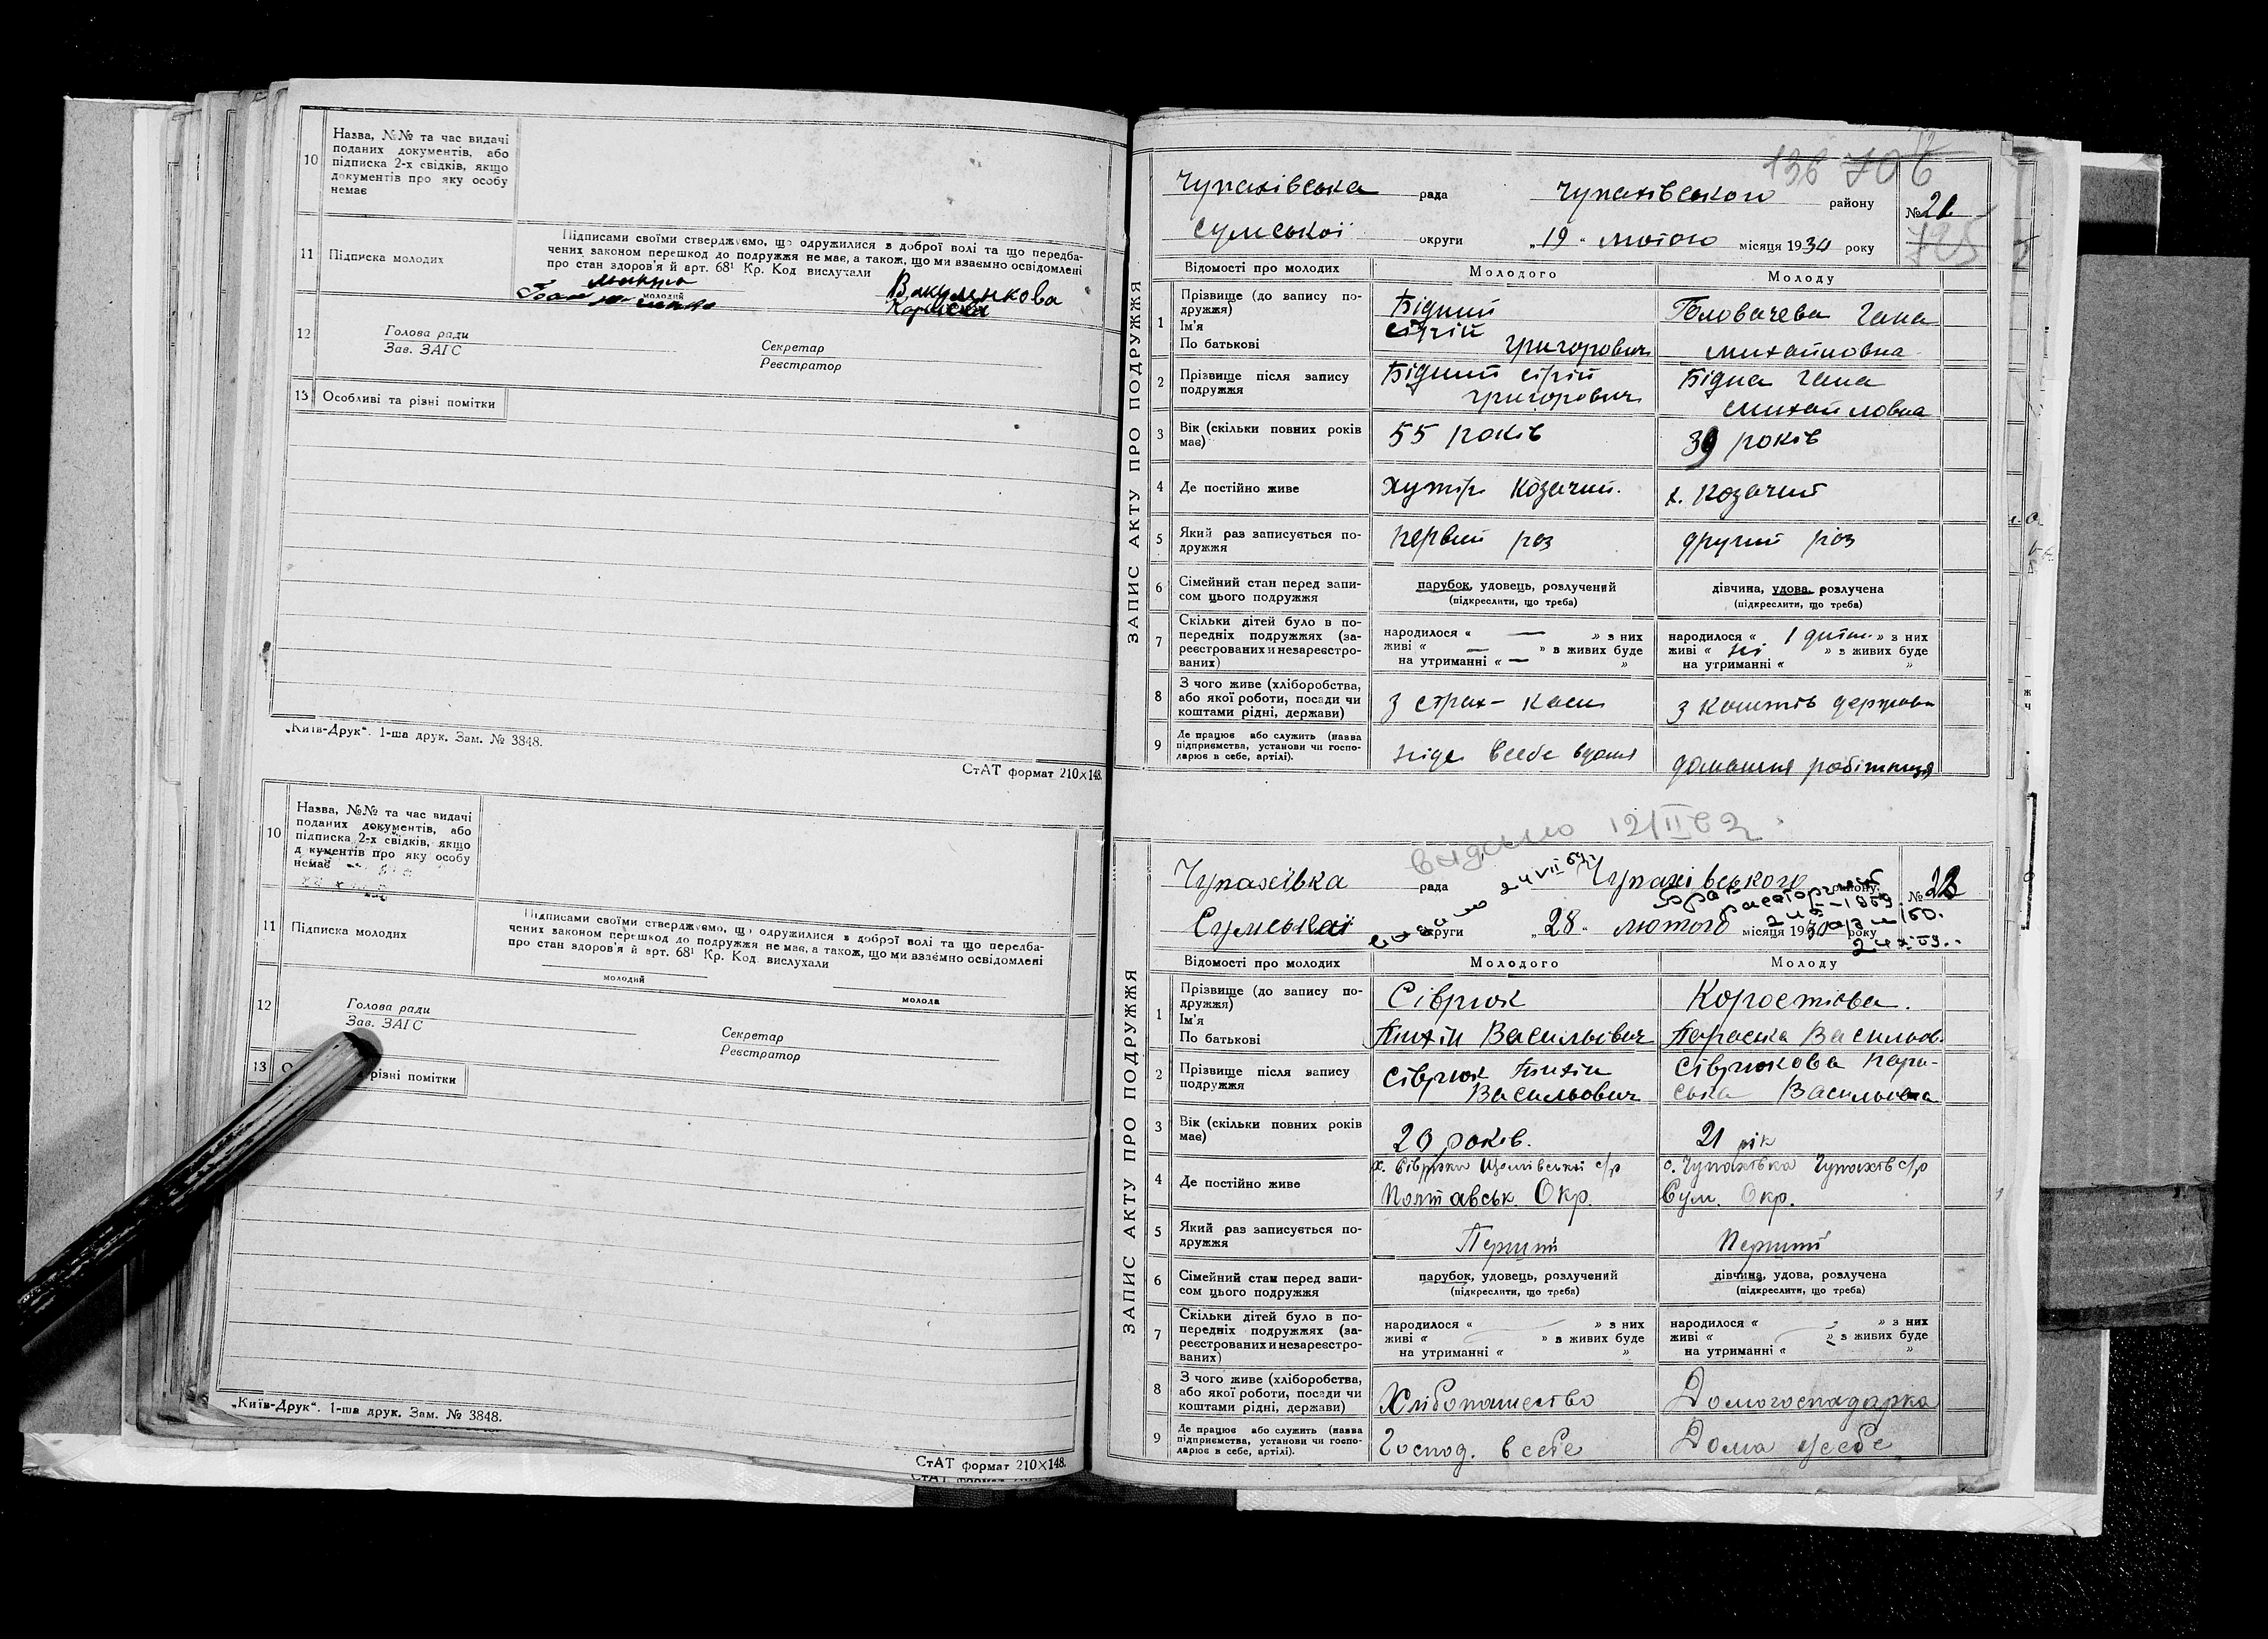 10
Назва, №№ та час видачі
поданих документів, або
підписка 2-х свідків, якщо
документів про яку особу
немає
11
Підписка молодих
Підписами своїми стверджуємо, що одружилися з доброї волі та що передба-
чених законом перешкод до подружжя немає, а також, що ми взаємно освідомлені
про стан здоров'я й арт. 68¹ Кр. Код вислухали
молодий
Вакуленкова
12
Голова ради
Зав. ЗАГС
Секретар
Реєстратор
13
Особливі та різні помітки
„Київ-Друк“. 1-ша друк. Зам. № 3848.
СтАТ формат 210×148.
10
Назва, №№ та час видачі
поданих документів, або
підписка 2-х свідків, якщо
д кументів про яку особу
немає
11
Підписка молодих
Підписами своїми стверджуємо, що одружилися з доброї волі та що передба-
чених законом перешкод до подружжя немає, а також, що ми взаємно освідомлені
про стан здоров'я й арт. 68¹ Кр. Код вислухали
молодий
молода
12
Голова ради
Зав. ЗАГС
Секретар
Реєстратор
13
різні помітки
„Київ-Друк“. 1-ша друк. Зам. № 3848.
СтАТ формат 210×148.
136 706
ЗАПИС АКТУ ПРО ПОДРУЖЖЯ
Чупахівська рада Чупахівського району № 21
Сумської округи „19“ лютого місяця 1930 року
Відомості про молодих
Молодого
Молоду
1
Прізвище (до запису по-
дружжя)
Ім'я
По батькові
Бідний
Сергій
Григорович
Головачева Гана
Михайловна
2
Прізвище після запису
подружжя
Бідний Сергій
Григорович
Бідна Гана
Михайловна
3
Вік (скільки повних років
має)
55 років
39 років
4
Де постійно живе
хутір Козачий.
х. Козачий
5
Який раз записується по-
дружжя
первий раз
другий раз
6
Сімейний стан перед запи-
сом цього подружжя
парубок, удовець, розлучений
(підкреслити, що треба)
дівчина, удова, розлучена
(підкреслити, що треба)
7
Скільки дітей було в по-
передніх подружжях (за-
реєстрованих и незареєстро-
ваних)
народилося « — » з них
живі « — » в живих буде
на утриманні « — »
народилося « 1 дитин. » з них
живі « ні » з живих буде
на утриманні « »
8
З чого живе (хліборобства,
або якої роботи, посади чи
коштами рідні, держави)
з страх-каси
з коштів держави
9
Де працює або служить (назва
підприємства, установи чи госпо-
дарює в себе, артілі).
ніде всебе вдома
домашня робітниця
видано 12/II 62
ЗАПИС АКТУ ПРО ПОДРУЖЖЯ
Чупахівка рада Чупахівського району № 23
Сумської округи „28“ лютого місяця 1930 року
Відомості про молодих
Молодого
Молоду
1
Прізвище (до запису по-
дружжя)
Ім'я
По батькові
Сіврюк
Тихін Васильович
Коростіова.
Параска Васильов.
2
Прізвище після запису
подружжя
Сіврюк Тихін
Васильович
Сіврюкова Пара-
ска Васильовна
3
Вік (скільки повних років
має)
20 років.
21 рік
4
Де постійно живе
с/р
Полтавськ. Окр.
с. Чупахівка Чупахів с/р
Сум. Окр.
5
Який раз записується по-
дружжя
Перший
Перший
6
Сімейний стан перед запи-
сом цього подружжя
парубок, удовець, розлучений
(підкреслити, що треба)
дівчина, удова, розлучена
(підкреслити, що треба)
7
Скільки дітей було в по-
передніх подружжях (за-
реєстрованих и незареєстро-
ваних)
народилося « » з них
живі « » в живих буде
на утриманні « »
народилося « » з них
живі « » з живих буде
на утриманні « »
8
З чого живе (хліборобства,
або якої роботи, посади чи
коштами рідні, держави)
Хлібопашество
Домогосподарка
9
Де працює або служить (назва
підприємства, установи чи госпо-
дарює в себе, артілі).
Господ. в себе
Дома усебе